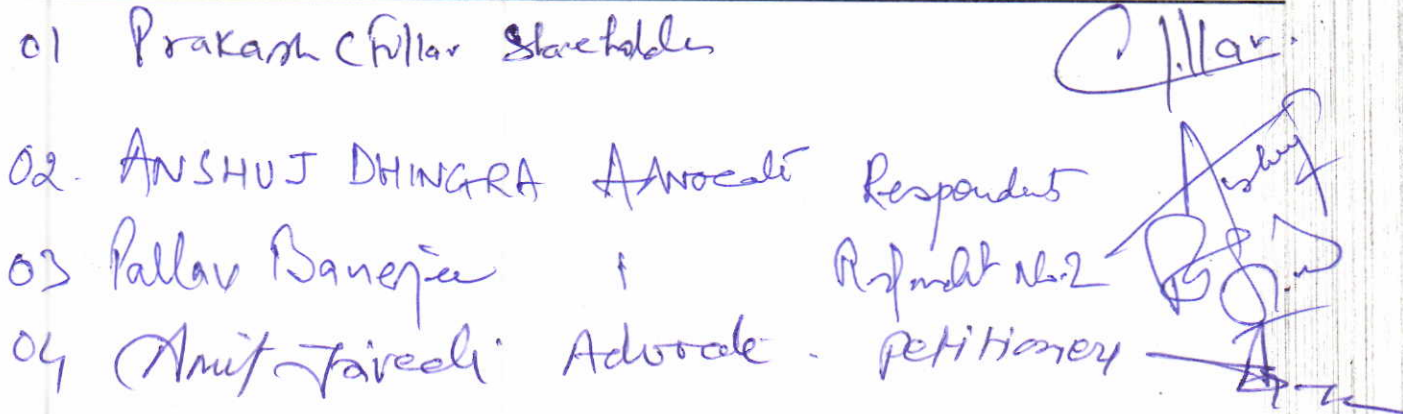 01 Prakash Chullar Shareholder
02. ANSHUJ DHINGRA Advocate Respondent
03 Pallav Banerjee " Respondent No. 2
04 Amit Advocate . Petitioner